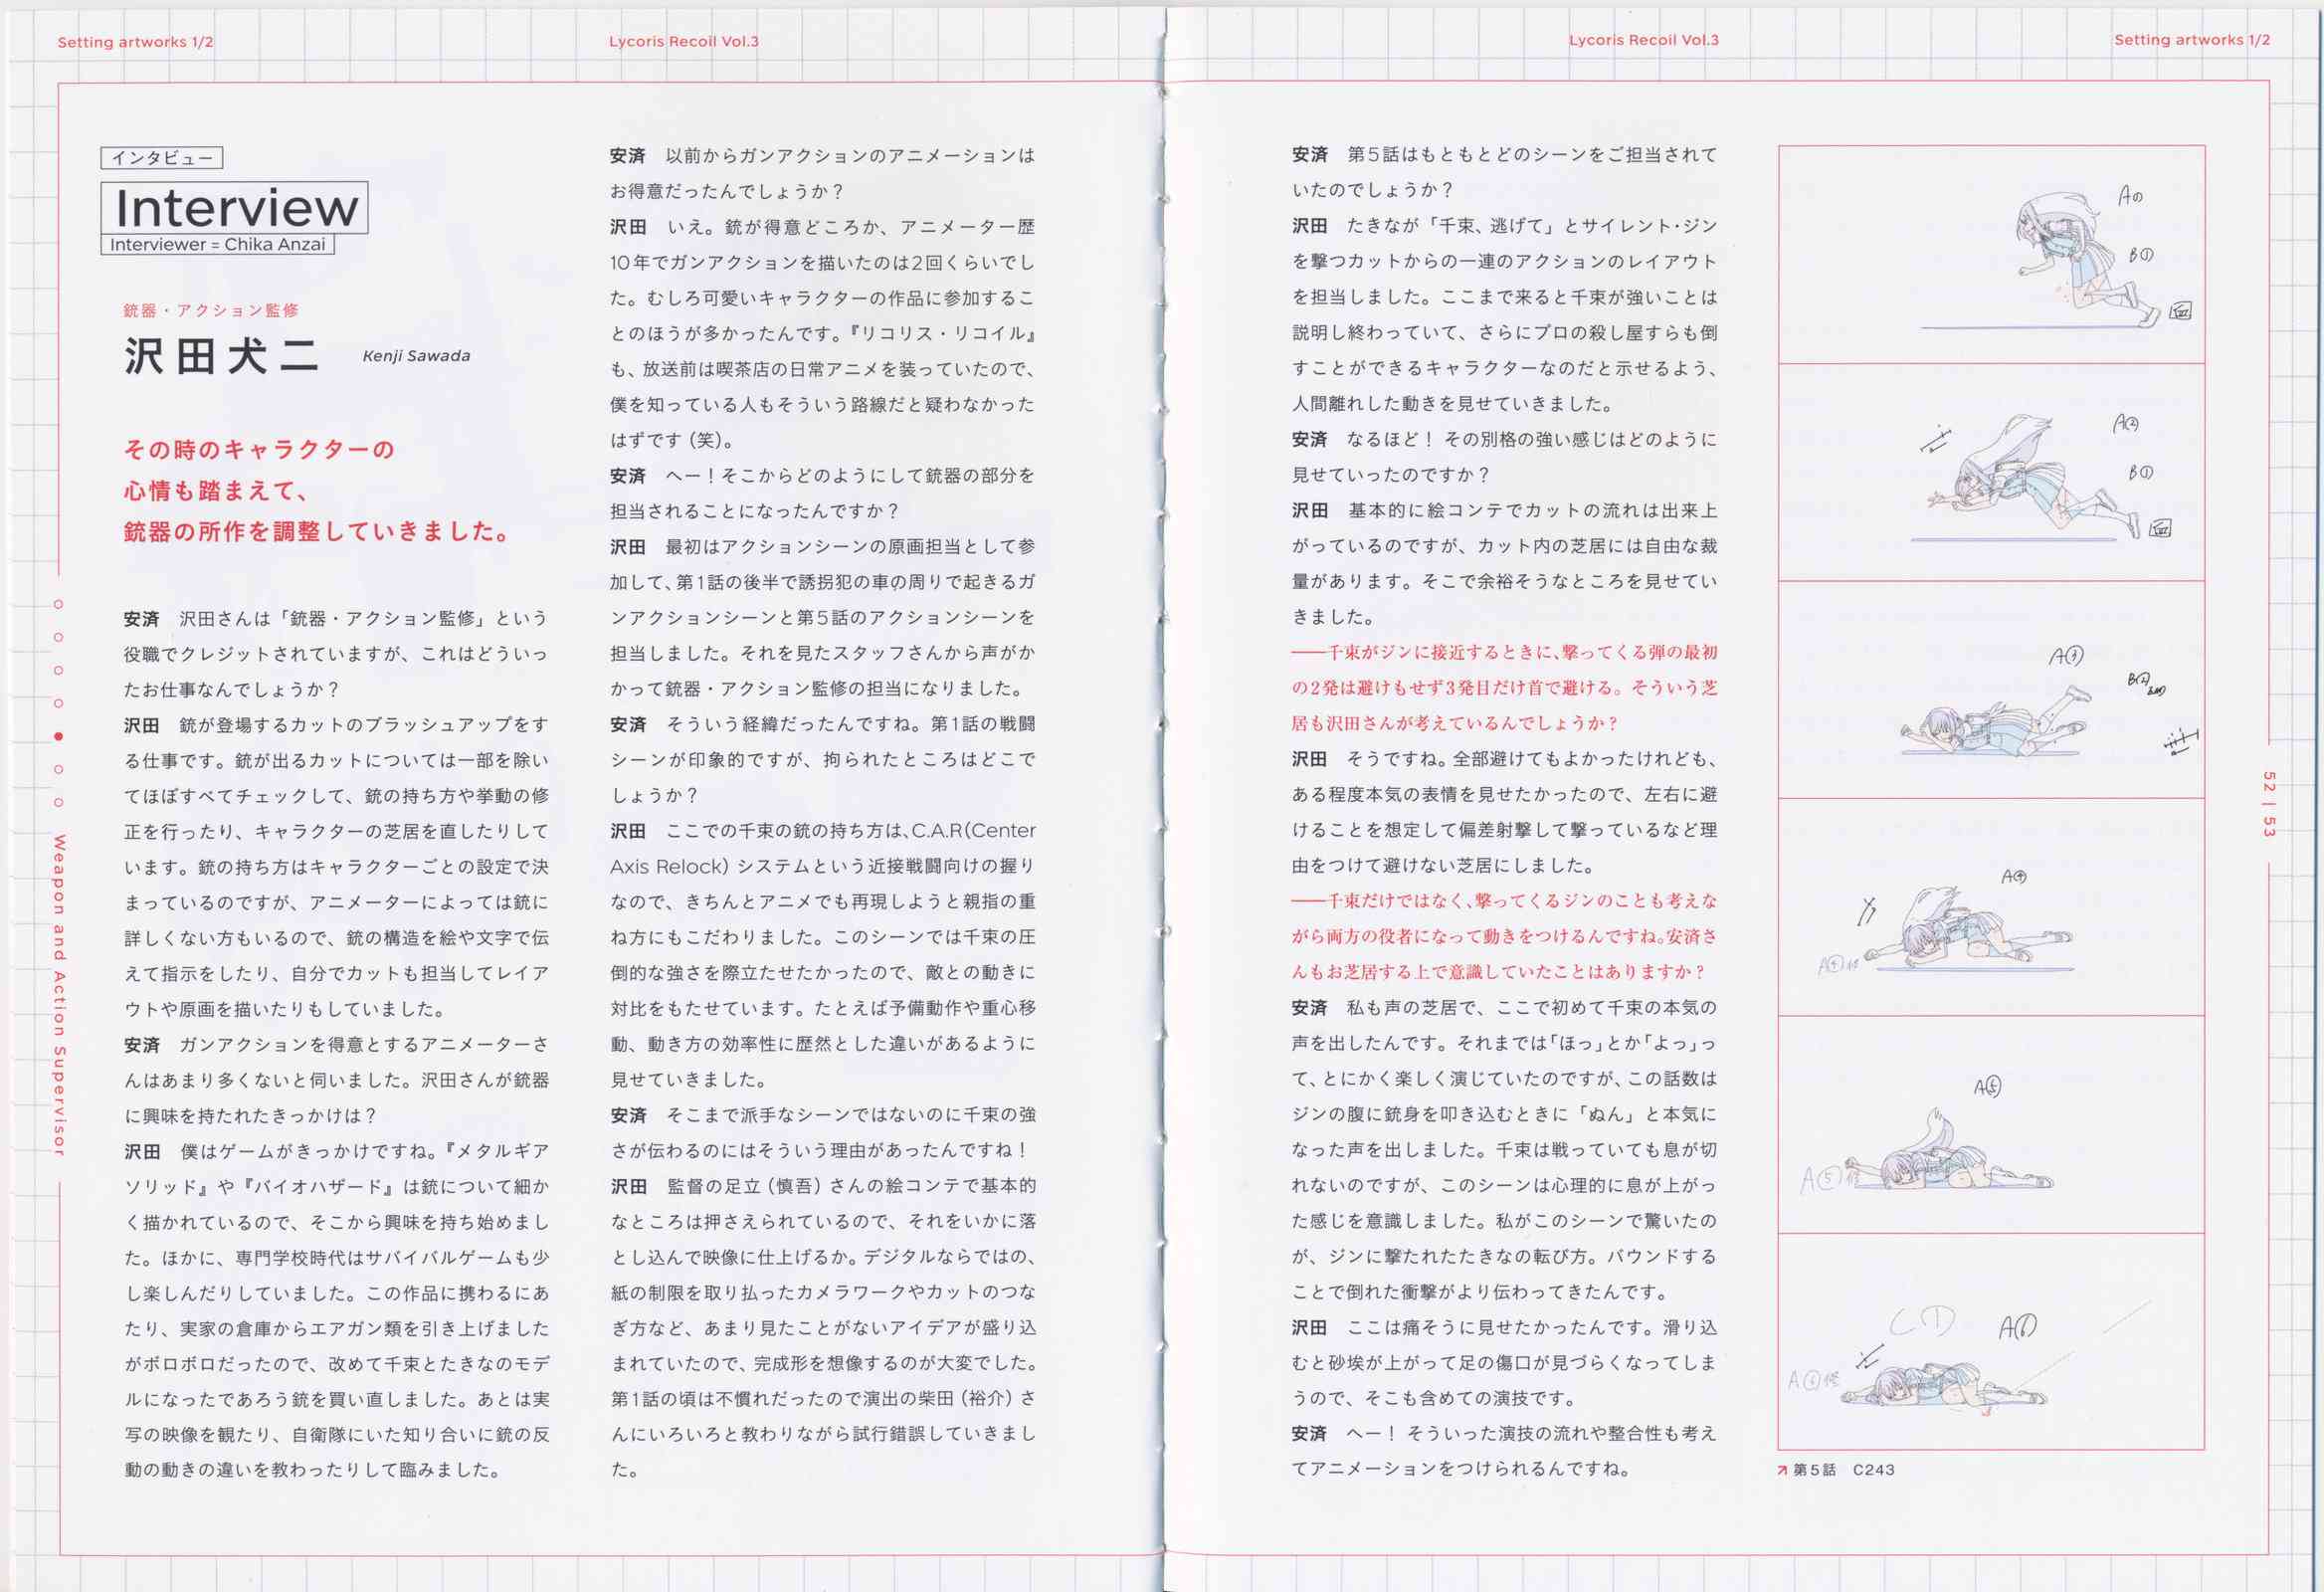 Setting artworks 1/2
Lycoris Recoil Vol.3
Lycoris Recoil Vol.3
Setting artworks 1/2
インタビュー
Interview
Interviewer = Chika Anzai
銃器・アクション監修
沢田犬二 Kenji Sawada
その時のキャラクターの
心情も踏まえて、
銃器の所作を調整していきました。
安済　沢田さんは「銃器・アクション監修」という
役職でクレジットされていますが、これはどういっ
たお仕事なんでしょうか？
沢田　銃が登場するカットのブラッシュアップをす
る仕事です。銃が出るカットについては一部を除い
てほぼすべてチェックして、銃の持ち方や挙動の修
正を行ったり、キャラクターの芝居を直したりして
います。銃の持ち方はキャラクターごとの設定で決
まっているのですが、アニメーターによっては銃に
詳しくない方もいるので、銃の構造を絵や文字で伝
えて指示をしたり、自分でカットも担当してレイア
ウトや原画を描いたりもしていました。
安済　ガンアクションを得意とするアニメーターさ
んはあまり多くないと伺いました。沢田さんが銃器
に興味を持たれたきっかけは？
沢田　僕はゲームがきっかけですね。『メタルギア
ソリッド』や『バイオハザード』は銃について細か
く描かれているので、そこから興味を持ち始めまし
た。ほかに、専門学校時代はサバイバルゲームも少
し楽しんだりしていました。この作品に携わるにあ
たり、実家の倉庫からエアガン類を引き上げました
がボロボロだったので、改めて千束とたきなのモデ
ルになったであろう銃を買い直しました。あとは実
写の映像を観たり、自衛隊にいた知り合いに銃の反
動の動きの違いを教わったりして臨みました。
安済　以前からガンアクションのアニメーションは
お得意だったんでしょうか？
沢田　いえ。銃が得意どころか、アニメーター歴
10年でガンアクションを描いたのは2回くらいでし
た。むしろ可愛いキャラクターの作品に参加するこ
とのほうが多かったんです。『リコリス・リコイル』
も、放送前は喫茶店の日常アニメを装っていたので、
僕を知っている人もそういう路線だと疑わなかった
はずです（笑）。
安済　へー！そこからどのようにして銃器の部分を
担当されることになったんですか？
沢田　最初はアクションシーンの原画担当として参
加して、第1話の後半で誘拐犯の車の周りで起きるガ
ンアクションシーンと第5話のアクションシーンを
担当しました。それを見たスタッフさんから声がか
かって銃器・アクション監修の担当になりました。
安済　そういう経緯だったんですね。第1話の戦闘
シーンが印象的ですが、拘られたところはどこで
しょうか？
沢田　ここでの千束の銃の持ち方は、C.A.R（Center
Axis Relock）システムという近接戦闘向けの握り
なので、きちんとアニメでも再現しようと親指の重
ね方にもこだわりました。このシーンでは千束の圧
倒的な強さを際立たせたかったので、敵との動きに
対比をもたせています。たとえば予備動作や重心移
動、動き方の効率性に歴然とした違いがあるように
見せていきました。
安済　そこまで派手なシーンではないのに千束の強
さが伝わるのにはそういう理由があったんですね！
沢田　監督の足立（慎吾）さんの絵コンテで基本的
なところは押さえられているので、それをいかに落
とし込んで映像に仕上げるか。デジタルならではの、
紙の制限を取り払ったカメラワークやカットのつな
ぎ方など、あまり見たことがないアイデアが盛り込
まれていたので、完成形を想像するのが大変でした。
第1話の頃は不慣れだったので演出の柴田（裕介）さ
んにいろいろと教わりながら試行錯誤していきまし
た。
安済　第5話はもともとどのシーンをご担当されて
いたのでしょうか？
沢田　たきなが「千束、逃げて」とサイレント・ジン
を撃つカットからの一連のアクションのレイアウト
を担当しました。ここまで来ると千束が強いことは
説明し終わっていて、さらにプロの殺し屋すらも倒
すことができるキャラクターなのだと示せるよう、
人間離れした動きを見せていきました。
安済　なるほど！ その別格の強い感じはどのように
見せていったのですか？
沢田　基本的に絵コンテでカットの流れは出来上
がっているのですが、カット内の芝居には自由な裁
量があります。そこで余裕そうなところを見せてい
きました。
――千束がジンに接近するときに、撃ってくる弾の最初
の2発は避けもせず3発目だけ首で避ける。そういう芝
居も沢田さんが考えているんでしょうか？
沢田　そうですね。全部避けてもよかったけれども、
ある程度本気の表情を見せたかったので、左右に避
けることを想定して偏差射撃して撃っているなど理
由をつけて避けない芝居にしました。
――千束だけではなく、撃ってくるジンのことも考えな
がら両方の役者になって動きをつけるんですね。安済さ
んもお芝居する上で意識していたことはありますか？
安済　私も声の芝居で、ここで初めて千束の本気の
声を出したんです。それまでは「ほっ」とか「よっ」っ
て、とにかく楽しく演じていたのですが、この話数は
ジンの腹に銃身を叩き込むときに「ぬん」と本気に
なった声を出しました。千束は戦っていても息が切
れないのですが、このシーンは心理的に息が上がっ
た感じを意識しました。私がこのシーンで驚いたの
が、ジンに撃たれたたきなの転び方。バウンドする
ことで倒れた衝撃がより伝わってきたんです。
沢田　ここは痛そうに見せたかったんです。滑り込
むと砂埃が上がって足の傷口が見づらくなってしま
うので、そこも含めての演技です。
安済　へー！ そういった演技の流れや整合性も考え
てアニメーションをつけられるんですね。
B①
A②
B①
A③
A④
A④修
A⑤
A⑤修
C①
A⑥
A⑥修
第5話　C243
Weapon and Action Supervisor
52 | 53